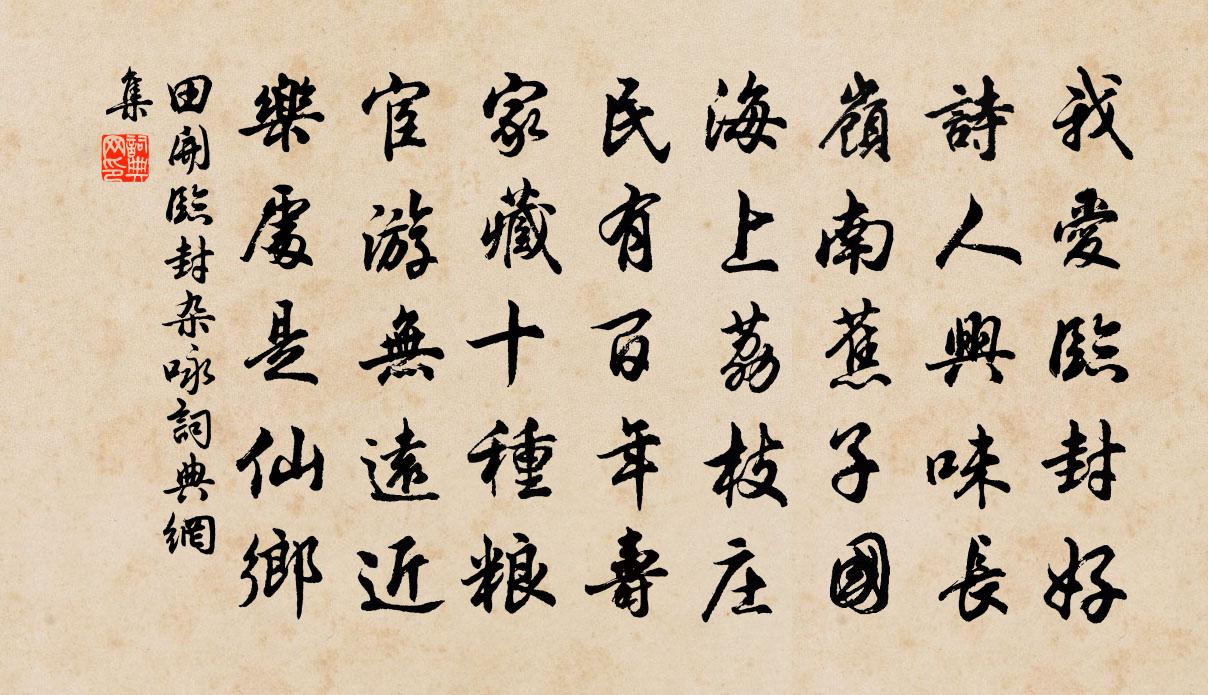 我愛臨封好
詩人興味長
嶺南蕉子國
海上荔枝庄
民有百年壽
家藏十種粮
宦游無遠近
樂處是仙鄉
田開臨封杂咏詞典網
集
詞典
网印